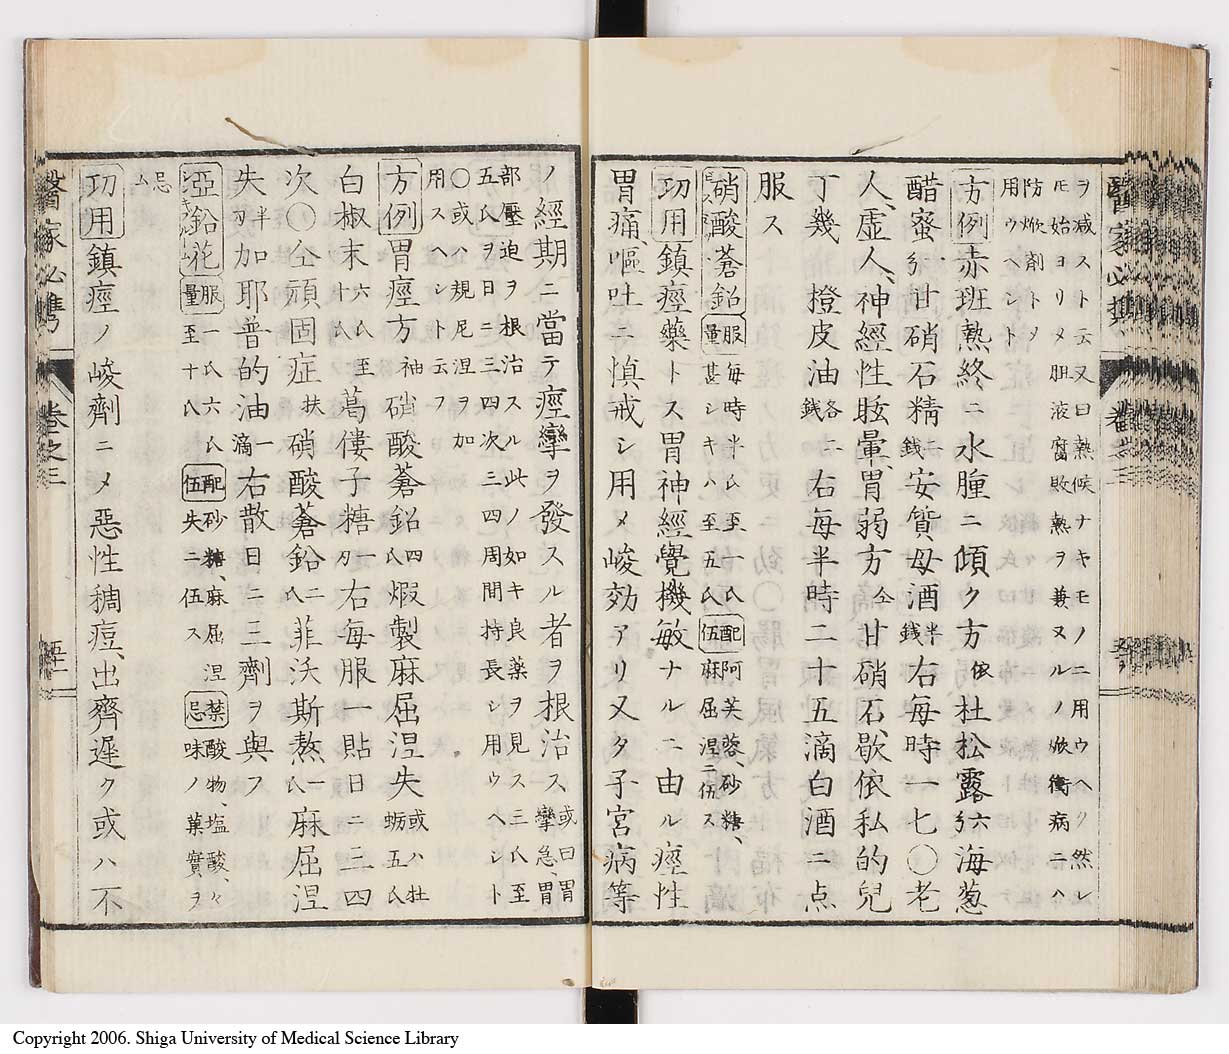 ヲ減スト云又曰熱候ナキモノニ用ウヘクノ然レ
𪜈始ヨリメ胆液腐敗熱ヲ兼ヌルノ焮衝病ニハ
防焮剤トメ
用ウヘシト
方例赤班熱終ニ水腫ニ傾ク方依杜松露六海葱
醋蜜幺甘硝石精二銭安質母酒半銭右每時一七〇老
人、虚人、神經性眩暈、胃弱方仝甘硝石、歇依私的兒
丁幾橙皮油各二銭右每半時二十五滴白酒ニ点
服ス
硝酸蒼鉛服量每時半氏至一氏甚シキハ至五氏配伍阿芙蓉、砂糖、麻屈涅ニ伍ス
功用鎮痙藥トス胃神經覺機敏ナルニ由ル痙性
胃痛、嘔吐ニ慎戒シ用メ峻効アリ又タ子宮病等
ノ經期ニ當テ痙攣ヲ發スル者ヲ根治ス、或曰胃攣急、胃
部壓迫ヲ根治スル此ノ如キ良薬ヲ見ス三氏至
五氏ヲ日ニ三四次二四周間持長シ用ウヘシト
〇或ハ規尼涅ヲ加
用スヘシト云フ
方例胃痙方袖硝酸蒼鉛四氏煆製麻屈涅失或ハ牡蛎五氏
白椒末六氏至十氏葛僂子糖一刃右每服一貼日ニ三四
次〇仝頑固症扶硝酸蒼鉛二氏菲沃斯熬一氏麻屈涅
失半刃加耶普的油一滴右散日ニ三劑ヲ與フ
亞鉛花服量一氏六氏至十八配伍砂糖、麻屈涅失ニ伍ス禁忌酸物、塩酸、々味ノ菓實ヲ
忌ム
功用鎮痙ノ峻劑ニメ惡性稠痘、出齊遲ク或ハ不
醫家必携
卷之三
Copyright 2006. Shiga University of Medical Science Library